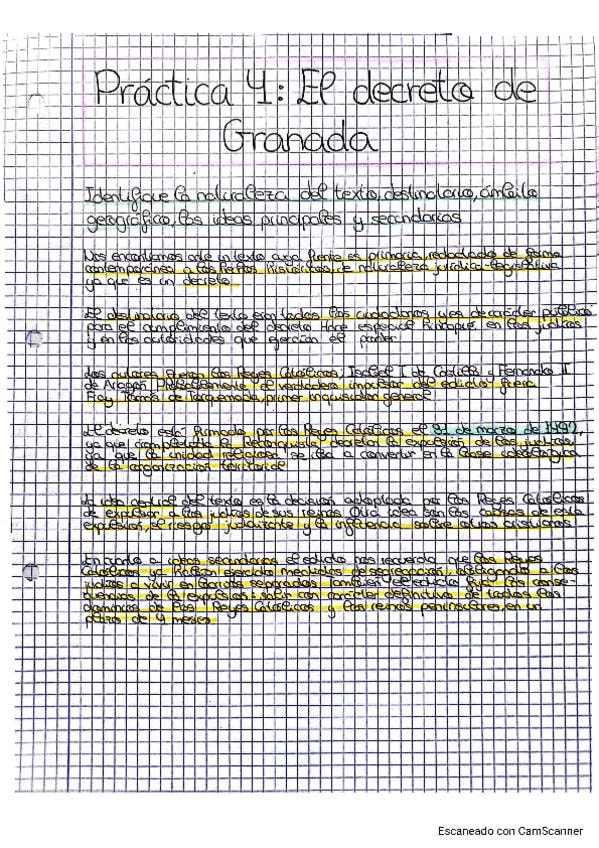 Práctica 4: El decreto de
Granada
Identifique la naturaleza del texto, destinatario, ámbito
geográfico, las ideas principales y secundarias
Nos encontramos ante un texto cuya fuente es primaria, redactado de forma
contemporánea a los hechos históricos, de naturaleza jurídica-legislativa
ya que es un decreto.
El destinatario del texto eran todos los ciudadanos y es de carácter público
para el cumplimiento del decreto. Hace especial hincapié en los judíos
y en las autoridades que ejercían el poder.
Los autores fueron los Reyes Católicos, Isabel I de Castilla y Fernando II
de Aragón. el verdadero impulsor del edicto fuera
Fray Tomás de Torquemada, primer inquisidor general.
El decreto está firmado por los Reyes Católicos el 31 de marzo de 1492,
ya que completada la Reconquista decretan la expulsión de los judíos,
ya que la unidad religiosa se iba a convertir en la base
de la organización territorial.
La idea central del texto es la decisión adoptada por los Reyes Católicos
de expulsar a los judíos de sus reinos. Otra idea son las causas de esta
expulsión, el riesgo judaizante y la influencia sobre otros cristianos.
En cuanto a ideas secundarias el edicto nos recuerda que los Reyes
Católicos ya habían ejercido medidas de segregación, obligando a los
judíos a vivir en barrios separados. También el edicto fija las conse-
cuencias de la expulsión: salir con carácter definitivo de todos los
dominios de los Reyes Católicos y los reinos peninsulares, en un
plazo de 4 meses.
Escaneado con CamScanner